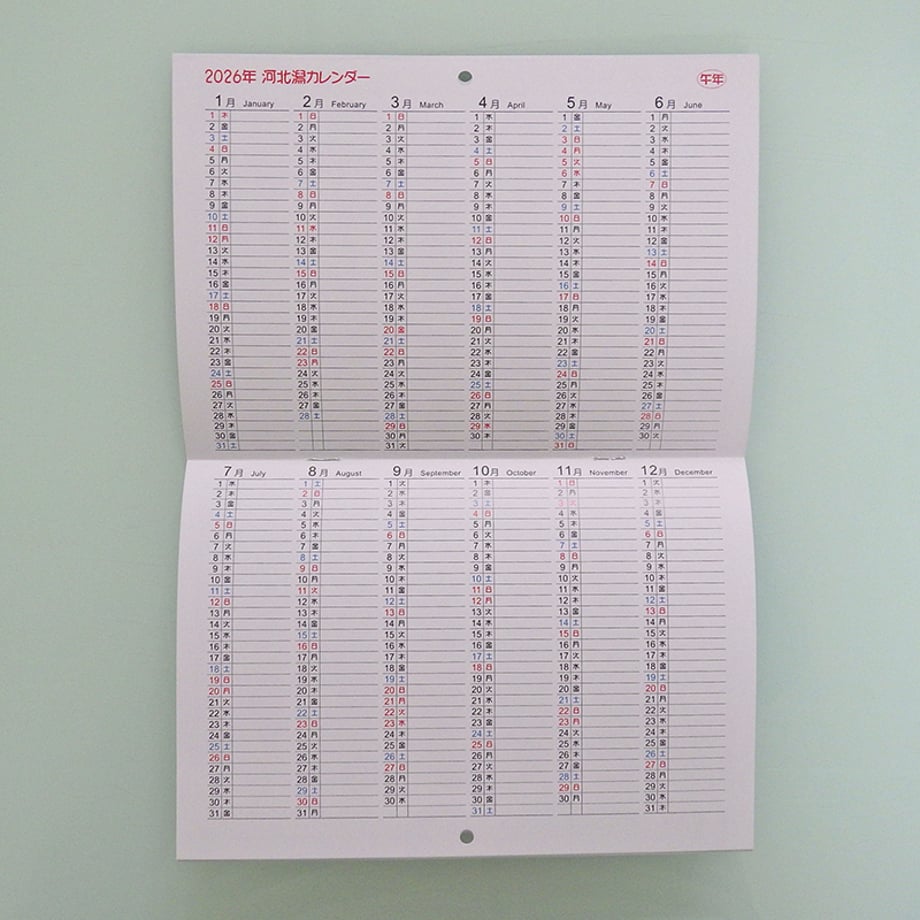 2026年 河北潟カレンダー 午年
1月 January 2月 February 3月 March 4月 April 5月 May 6月 June
1 木 1 日 1 日 1 水 1 金 1 月
2 金 2 月 2 月 2 木 2 土 2 火
3 土 3 火 3 火 3 金 3 日 3 水
4 日 4 水 4 水 4 土 4 月 4 木
5 月 5 木 5 木 5 日 5 火 5 金
6 火 6 金 6 金 6 月 6 水 6 土
7 水 7 土 7 土 7 火 7 木 7 日
8 木 8 日 8 日 8 水 8 金 8 月
9 金 9 月 9 月 9 木 9 土 9 火
10 土 10 火 10 火 10 金 10 日 10 水
11 日 11 水 11 水 11 土 11 月 11 木
12 月 12 木 12 木 12 日 12 火 12 金
13 火 13 金 13 金 13 月 13 水 13 土
14 水 14 土 14 土 14 火 14 木 14 日
15 木 15 日 15 日 15 水 15 金 15 月
16 金 16 月 16 月 16 木 16 土 16 火
17 土 17 火 17 火 17 金 17 日 17 水
18 日 18 水 18 水 18 土 18 月 18 木
19 月 19 木 19 木 19 日 19 火 19 金
20 火 20 金 20 金 20 月 20 水 20 土
21 水 21 土 21 土 21 火 21 木 21 日
22 木 22 日 22 日 22 水 22 金 22 月
23 金 23 月 23 月 23 木 23 土 23 火
24 土 24 火 24 火 24 金 24 日 24 水
25 日 25 水 25 水 25 土 25 月 25 木
26 月 26 木 26 木 26 日 26 火 26 金
27 火 27 金 27 金 27 月 27 水 27 土
28 水 28 土 28 土 28 火 28 木 28 日
29 木 29 日 29 水 29 金 29 月
30 金 30 月 30 木 30 土 30 火
31 土 31 火 31 日
7月 July 8月 August 9月 September 10月 October 11月 November 12月 December
1 水 1 土 1 火 1 木 1 日 1 火
2 木 2 日 2 水 2 金 2 月 2 水
3 金 3 月 3 木 3 土 3 火 3 木
4 土 4 火 4 金 4 日 4 水 4 金
5 日 5 水 5 土 5 月 5 木 5 土
6 月 6 木 6 日 6 火 6 金 6 日
7 火 7 金 7 月 7 水 7 土 7 月
8 水 8 土 8 火 8 木 8 日 8 火
9 木 9 日 9 水 9 金 9 月 9 水
10 金 10 月 10 木 10 土 10 火 10 木
11 土 11 火 11 金 11 日 11 水 11 金
12 日 12 水 12 土 12 月 12 木 12 土
13 月 13 木 13 日 13 火 13 金 13 日
14 火 14 金 14 月 14 水 14 土 14 月
15 水 15 土 15 火 15 木 15 日 15 火
16 木 16 日 16 水 16 金 16 月 16 水
17 金 17 月 17 木 17 土 17 火 17 木
18 土 18 火 18 金 18 日 18 水 18 金
19 日 19 水 19 土 19 月 19 木 19 土
20 月 20 木 20 日 20 火 20 金 20 日
21 火 21 金 21 月 21 水 21 土 21 月
22 水 22 土 22 火 22 木 22 日 22 火
23 木 23 日 23 水 23 金 23 月 23 水
24 金 24 月 24 木 24 土 24 火 24 木
25 土 25 火 25 金 25 日 25 水 25 金
26 日 26 水 26 土 26 月 26 木 26 土
27 月 27 木 27 日 27 火 27 金 27 日
28 火 28 金 28 月 28 水 28 土 28 月
29 水 29 土 29 火 29 木 29 日 29 火
30 木 30 日 30 水 30 金 30 月 30 水
31 金 31 月 31 土 31 木